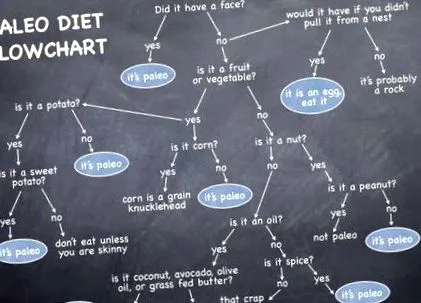 ALEO DIET
LOWCHART
Did it have a face?
would it have if you didn't
pull it from a nest
yes
no
yes
no
it's paleo
is it a fruit
or vegetable?
it is an egg,
eat it
it's probably
a rock
is it a potato?
yes
no
yes
no
is it corn?
is it a nut?
it's paleo
yes
no
no
yes
is it a sweet
potato?
corn is a grain
knucklehead
it's paleo
is it a peanut?
yes
no
is it an oil?
yes
no
it's paleo
don't eat unless
you are skinny
yes
no
not paleo
it's paleo
is it spice?
is it coconut, avocado, olive
oil, or grass fed butter?
no
yes
that crap
it's paleo